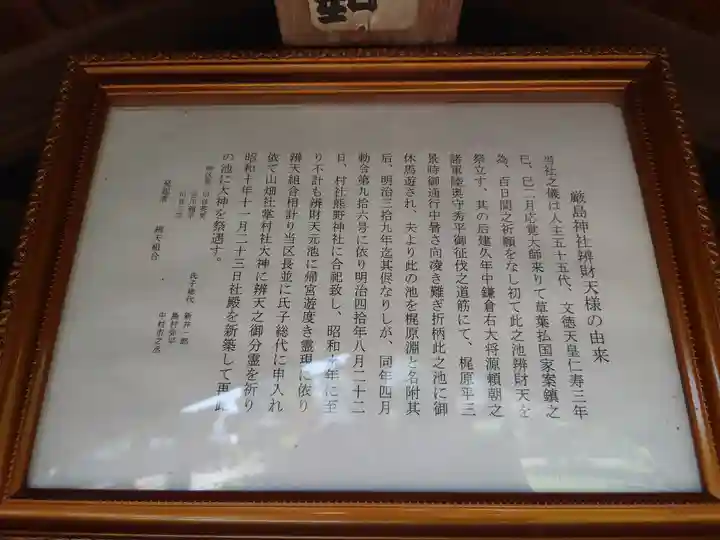 厳島神社辨財天様の由来
当社之儀は人主五十五代、文徳天皇仁寿三年
巳、巳二月応覚大師来りて草葉払国家案鎮之
為、百日間之祈願をなし初て此之池辨財天を
祭立す、其の后建久年中鎌倉右大将源頼朝之
諸軍陸奥守秀平御征伐之道筋にて、梶原平三
景時御通行中暑さ向凌き難ぎ折柄此之池に御
休馬遊され、夫より此の池を梶原淵と名附其
后、明治三拾九年迄其侭なりしが、同年四月
勅令第九拾六号に依り明治四拾年八月二十二
日、村社熊野神社に合祀致し、昭和十年に至
り不計も辨財天元池に帰宮遊度き霊現に依り
辨天組合相計り当区長並に氏子総代に申入れ
依て山畑社掌村社大神に辨天之御分霊を祈り
昭和十年十一月二十三日社殿を新築して再此
の池に大神を祭遇す。
氏子総代 新井一郎
島村弥平
中村市之丞
辨天組合